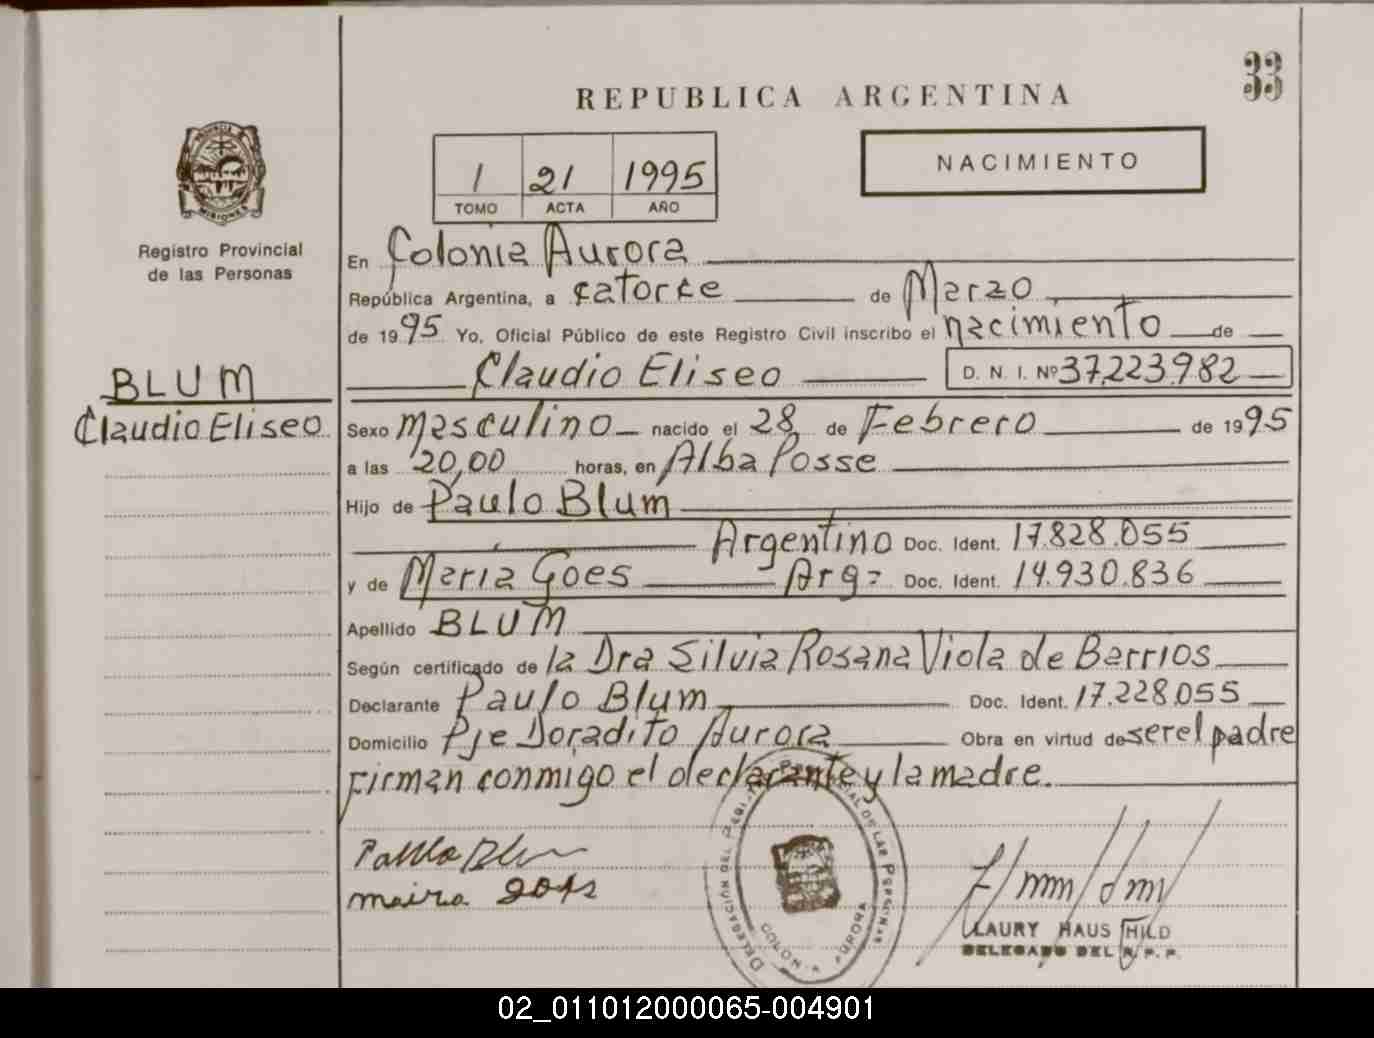 33
REPUBLICA ARGENTINA
PROVINCIA DE
MISIONES
Registro Provincial
de las Personas
1 21 1995
TOMO ACTA AÑO
NACIMIENTO
BLUM
Claudio Eliseo
En Colonia Aurora
República Argentina, a catorce de Marzo
de 1995 Yo, Oficial Público de este Registro Civil inscribo el nacimiento de
Claudio Eliseo D. N. I. Nº 37.223.982
Sexo masculino nacido el 28 de Febrero de 1995
a las 20,00 horas, en Alba Posse
Hijo de Paulo Blum
Argentino Doc. Ident. 17.828.055
y de Maria Goes Arg= Doc. Ident. 14.930.836
Apellido BLUM
Según certificado de la Dra Silvia Rosana Viola de Barrios
Declarante Paulo Blum Doc. Ident. 17.228.055
Domicilio Pje Doradito Aurora Obra en virtud de ser el padre
Firman conmigo el declarante y la madre.
DELEGACION DEL REGISTRO PROVINCIAL DE LAS PERSONAS
COLONIA AURORA
LAURY HAUS HILD
DELEGADO DEL R. P. P.
02_011012000065-004901